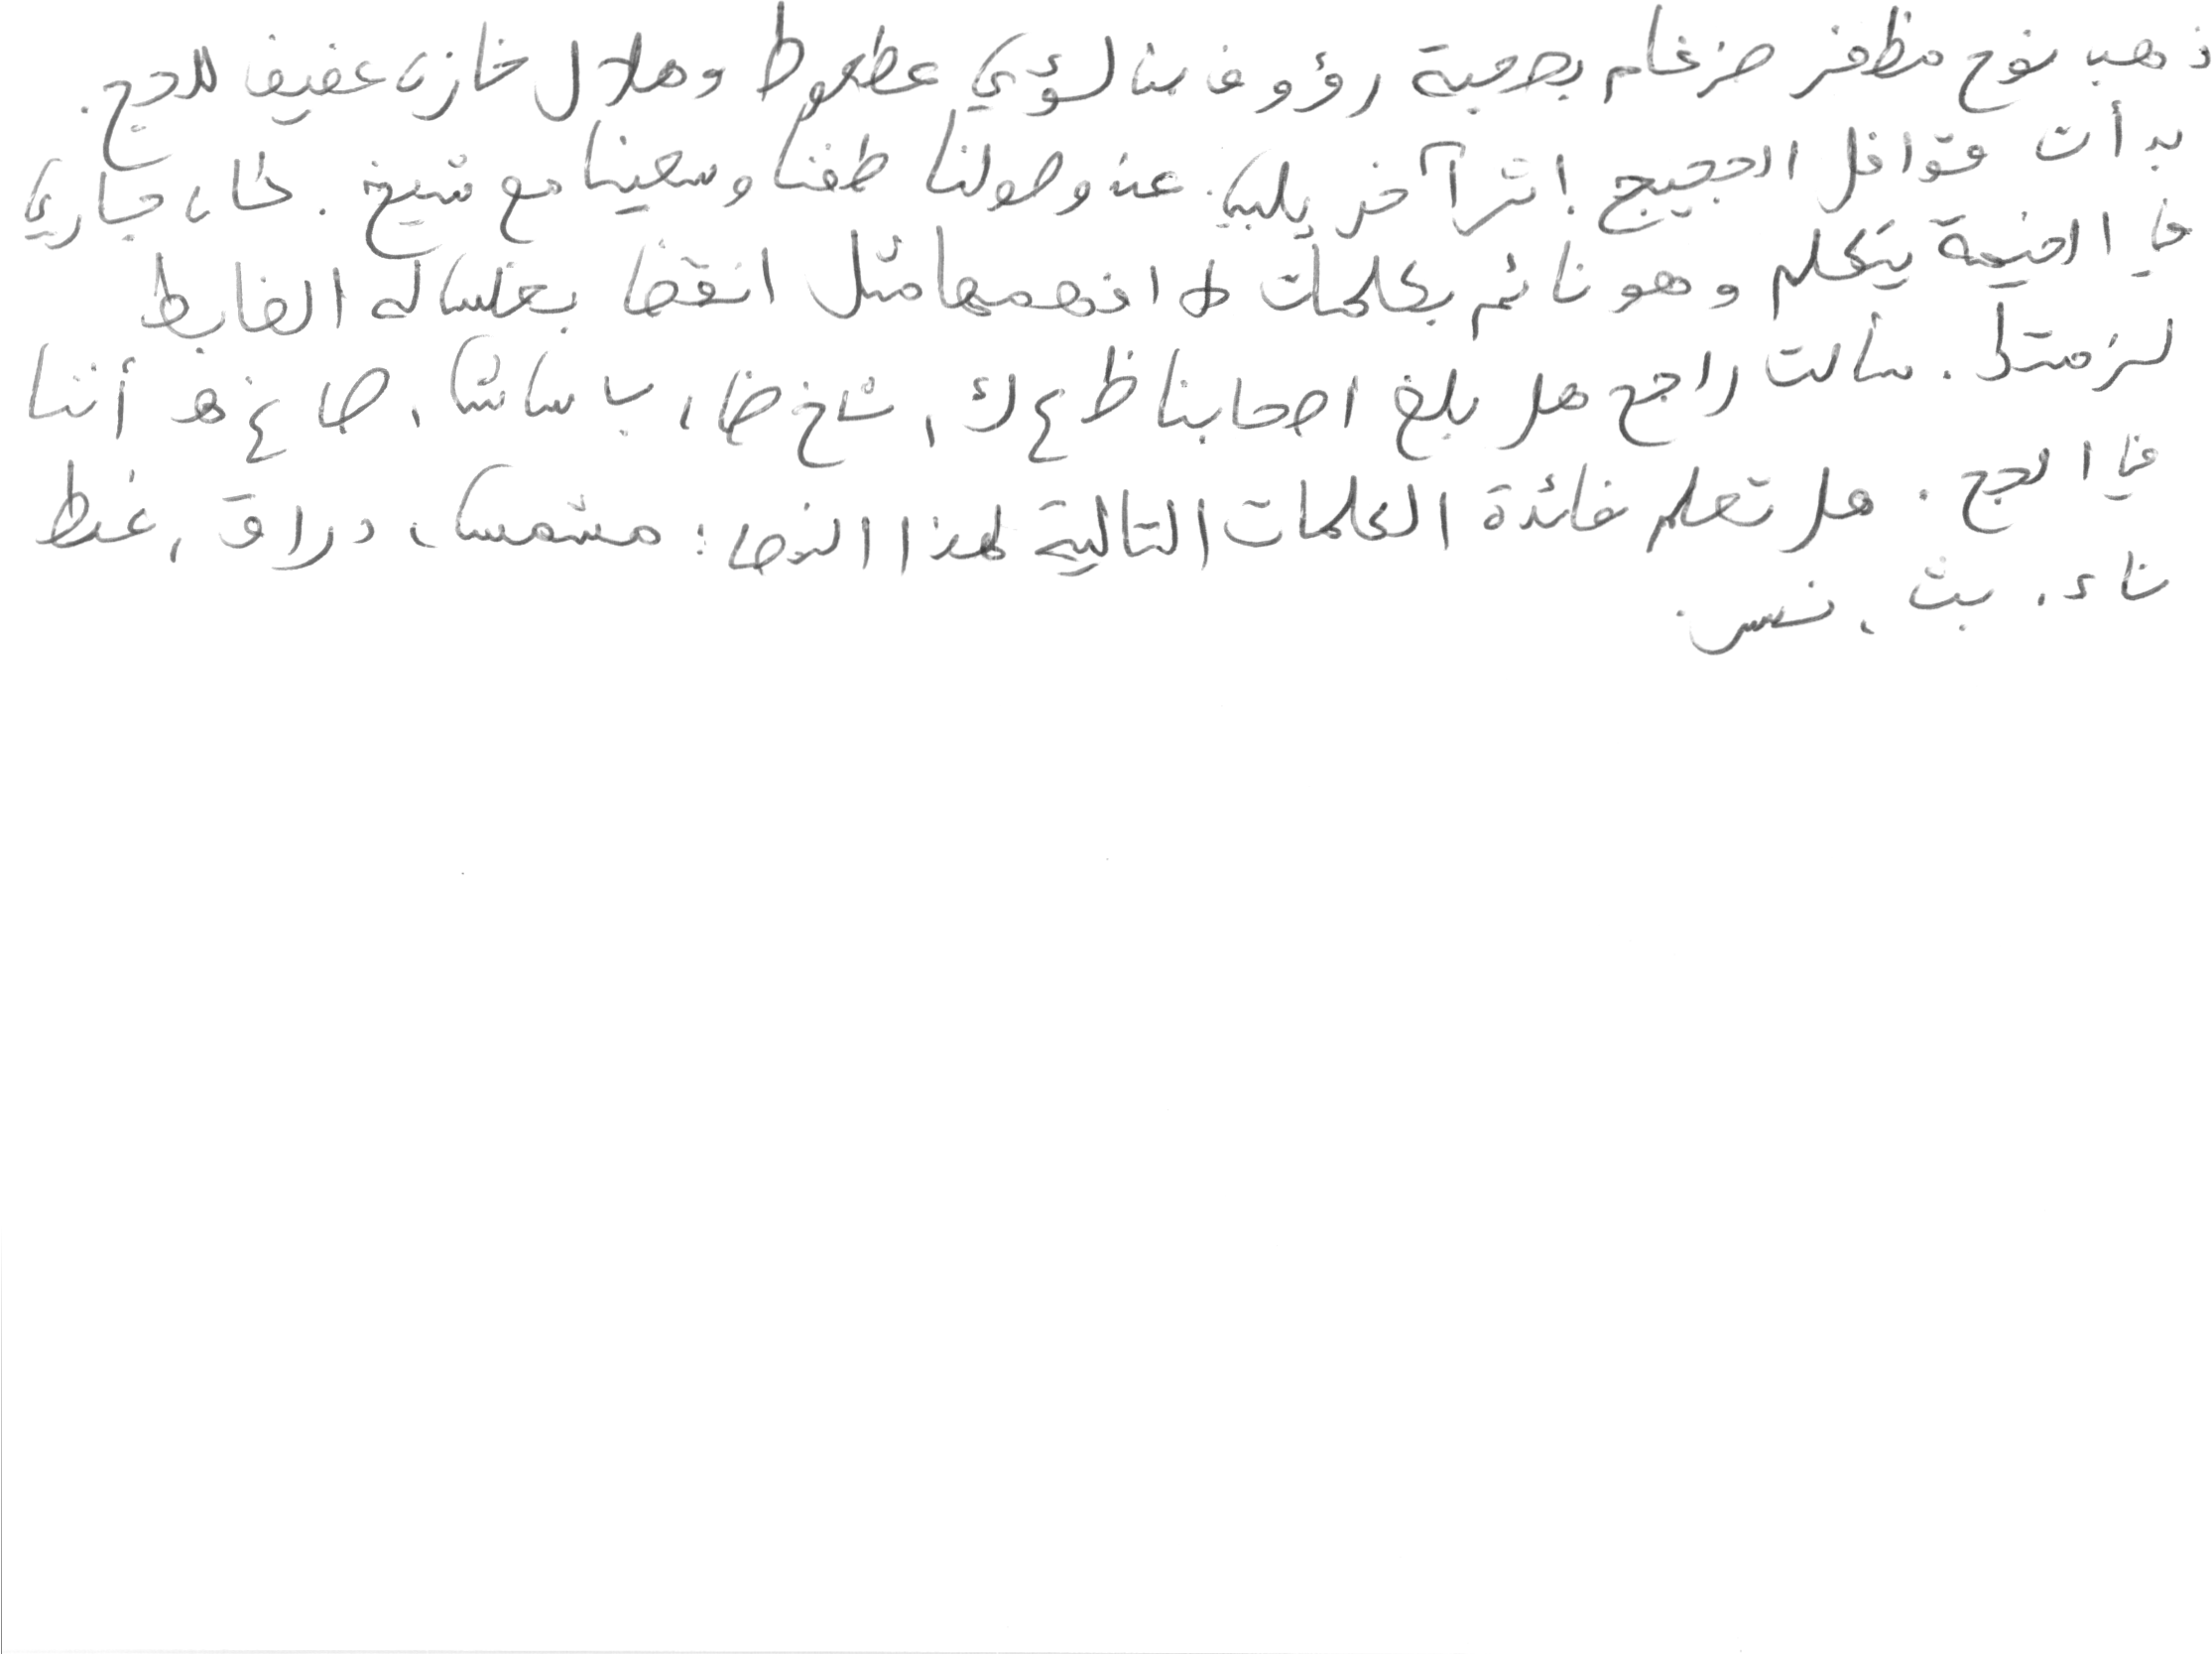 ذهب نوح مظفر ضرغام بصحبة رؤوف بن لؤي عطعوط وهلال خازن عفيف للحج.
بدأت قوافل الحجيج إثر آخر يلبي. عند وصولنا طفنا وسعينا مع شيخ. كان جاري
في الخيمة يتكلم وهو نائم بكلمات لا افهمها مثل انقض بغلس له الضابط
لزمتط. سألت راجح هل بلغ اصحابنا ظ ع ك، ش خ ض، ب س ش، ص غ هـ أننا
في الحج. هل تعلم فائدة الكلمات التالية لهذا النص: مشمس، دراق، غط
ناء، بث، نس.